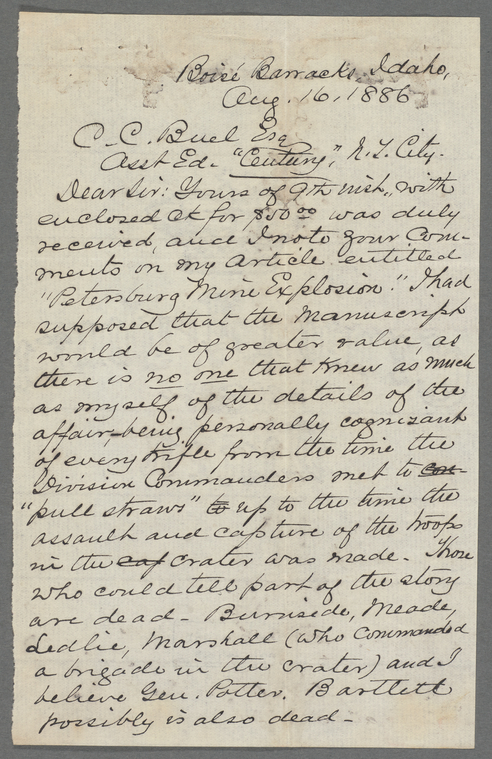 Boisé Barracks, Idaho,
Aug. 16, 1886
C. C. Buel Esq
Asst Ed. "Century", N.Y. City.
Dear Sir: Yours of 9th inst., with
enclosed ck for $50 00 was duly
received, and I note your com-
ments on my article entitled
"Petersburg Mine Explosion." I had
supposed that the manuscript
would be of greater value, as
there is no one that knew as much
as myself of the details of the
affair—being personally cognizant
of every trifle from the time the
Division Commanders met to con-
"pull straws" to up to the time the
assault and capture of the troops
in the cap crater was made. Those
who could tell part of the story
are dead - Burnside, Meade,
Ledlie, Marshall (who commanded
a brigade in the crater) and I
believe Gen. Potter. Bartlett
possibly is also dead -